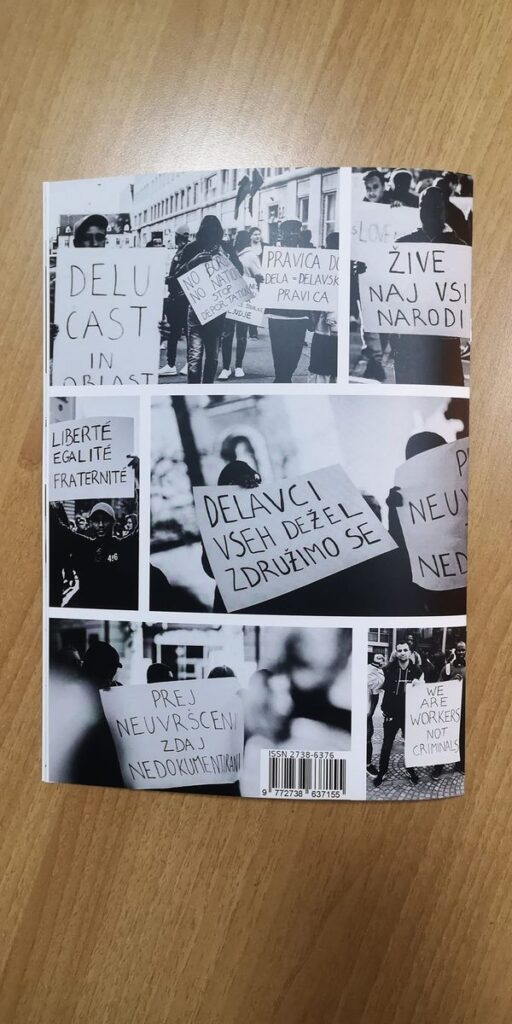 DELU
CAST
IN
OBLAST
NO BORD
NO NATIO
STOP
DEPORTATION
LJUDJE
PRAVICA DO
DELA = DELAVSK
PRAVICA
LOVE
ŽIVE
NAJ VSI
NARODI
LIBERTÉ
EGALITÉ
FRATERNITÉ
DELAVCI
VSEH DEŽEL
ZDRUŽIMO SE
P
NEUV
NED
PREJ
NEUVRŠČENI
ZDAJ
NEDOKUMENTIRANI
WE
ARE
WORKERS
NOT
CRIMINALS
ISSN 2738-6376
9 772738 637155